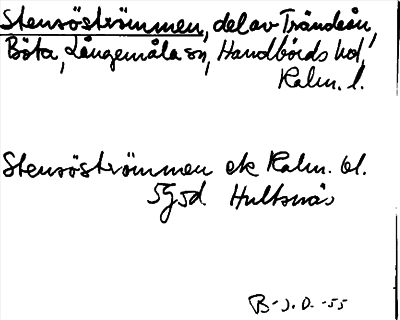 Stensöströmmen, del av Trändeån,
Böta, Långemåla sn, Handbörds hd,
Kalm. l.
Stensöströmmen ek Kalm. bl.
5g5d Hultsnäs
B-J.D.-55